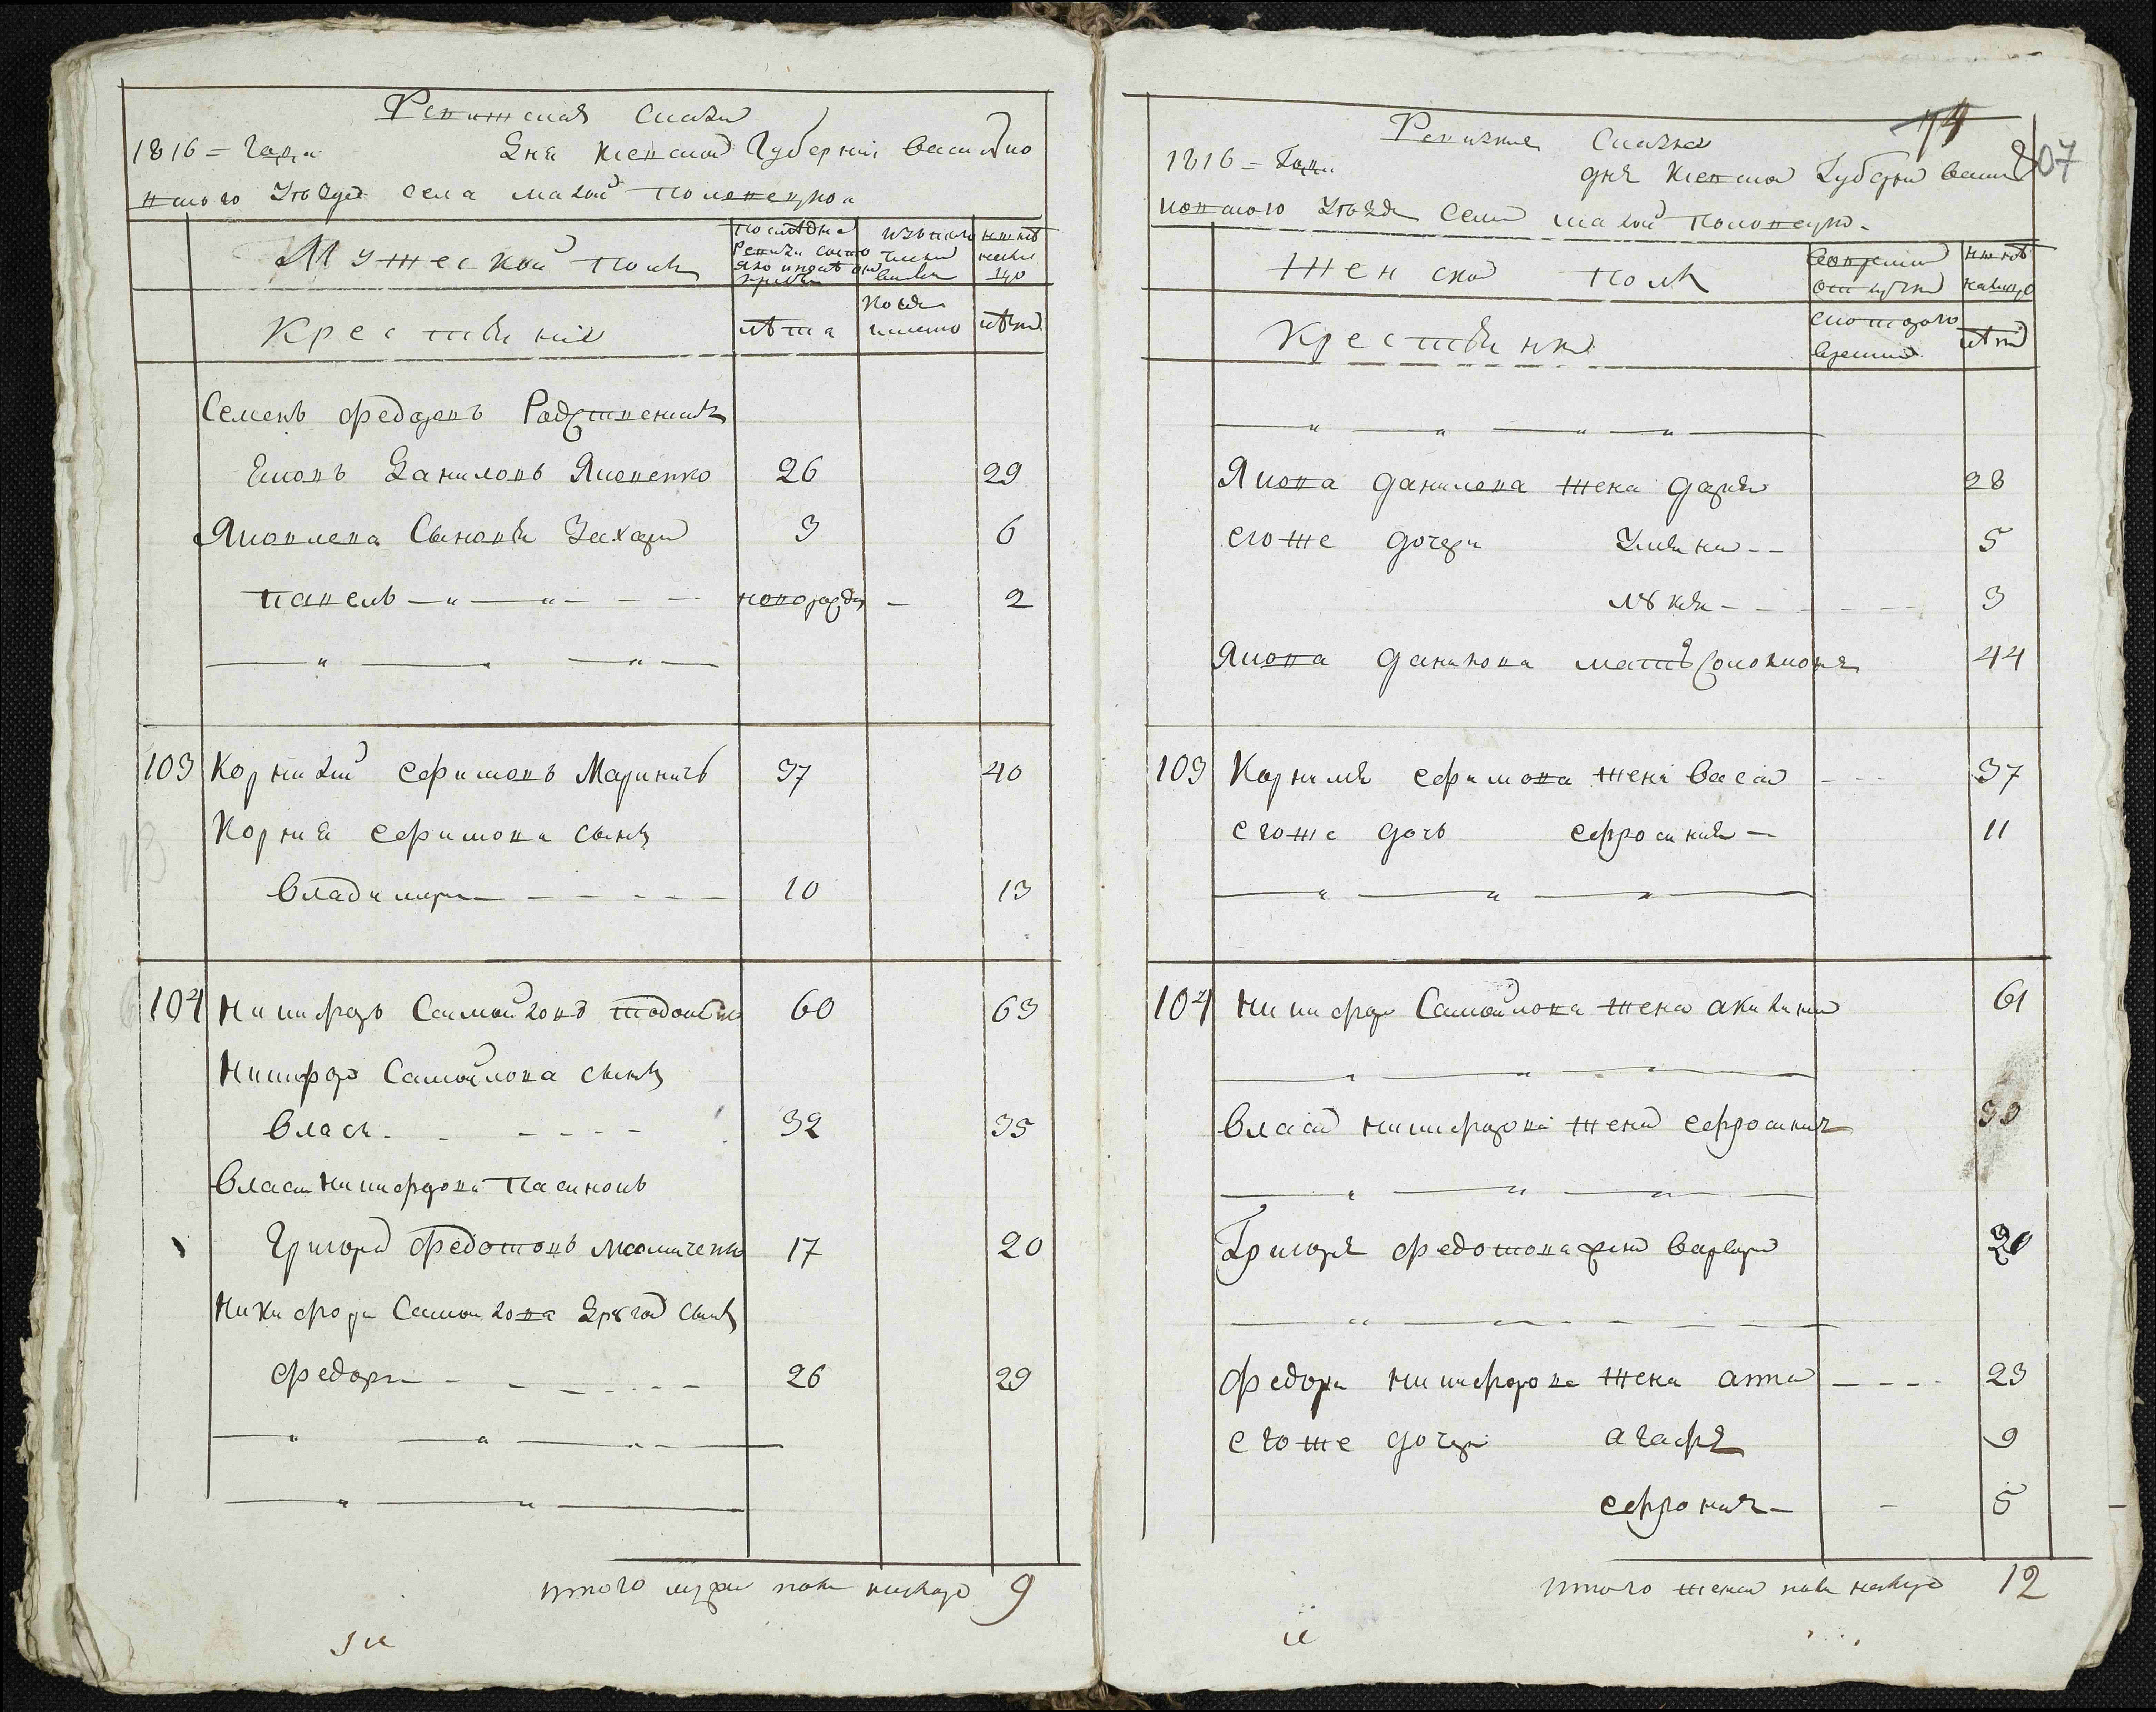 Ревижская Сказка
1816 = Года Дня Киевской Губернии Василко
вского Уѣзда Села Малой Половецкой
Мужеской полъ
последней Ревизии состояло
изъ того числа
ныне на лицо
Крестьяне
лѣта
когда именно
лѣта
Семенъ Федоровъ Родственникъ
Яковъ Даниловъ Яковенко 26 29
Яковлева Сыновья Захарий 3 6
Павелъ новорожд 2
103 Корнилий Ефимовъ Мариничъ 37 40
Корния Ефимова сынъ
Владимиръ 10 13
104 Никифоръ Самойловъ 60 63
Никифора Самойлова сынъ
Власъ 32 35
Власа Никифорова Пасинокъ
Григорий Федотовъ 17 20
Никифора Самойлова Другой сынъ
Федоръ 26 29
итого мужеска пола налицо 9
74
807
Ревижская Сказка
1816 = Года дня Киевской Губернии Васил
ковского Уѣзда Села Малой Половецкой
Женской полъ
во временной отлучке
ныне налицо
Крестьянки
с которого времени
лѣта
Якова Данилова жена Дария 28
егоже дочери Ульяна 5
Лукия 3
Якова Данилова мать Соломония 44
103 Корнилия Ефимова жена Васса 37
егоже дочь Ефросиния 11
104 Никифора Самойлова жена Акилина 61
Власа Никифорова жена Ефросиния 33
Григория Федотова жена Варвара 20
Федора Никифорова жена Анна 23
егоже дочери Агафия 9
Ефрония 5
итого женска пола налицо 12